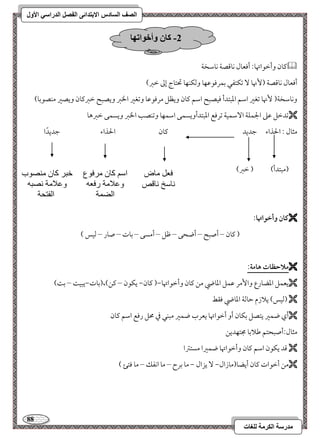 الصف السادس الابتدائى الفصل الدراسي الأول
2- كان وأخواتها
كان وأخواتها: أفعال ناقصة ناسخة
أفعال ناقصة (لأنها لا تكتفي بمرفوعها ولكنها تحتاج إلى خبر)
وناسخة( لأنها تغير اسم المبتدأ فيصبح اسم كان ويظل مرفوعا وتغير الخبر ويصبح خبركان ويصير منصوبا)
تدخل على الجملة الاسمية ترفع المبتدأويسمى اسمها وتنصب الخبر ويسمى خبرها
مثال : الحذاء جديد كان الحذاء جديدًا
(مبتدأ) ( خبر) فعل ماض ناسخ ناقص اسم كان مرفوع وعلامة رفعه الضمة خبر كان منصوب وعلامة نصبه الفتحة
كان وأخواتها:
( كان – أصبح – أضحى – ظل – أمسى – بات – صار – ليس )
ملاحظات هامة:
يعمل المضارع والأمر عمل الماضي من كان وأخواتها-( كان- يكون – كن)،(بات-يبيت – بت)
(ليس) يلازم حالة الماضي فقط
أي ضمير يتصل بكان أو أخواتها يعرب ضمير مبني في محل رفع اسم كان
مثال:أصبحتم طلابا مجتهدين
قد يكون اسم كان وأخواتها ضميرا مستترا
من أخوات كان أيضا(مازال- لا يزال - ما برح – ما انفك – ما فتئ )
88
مدرسة الكرمة للغات